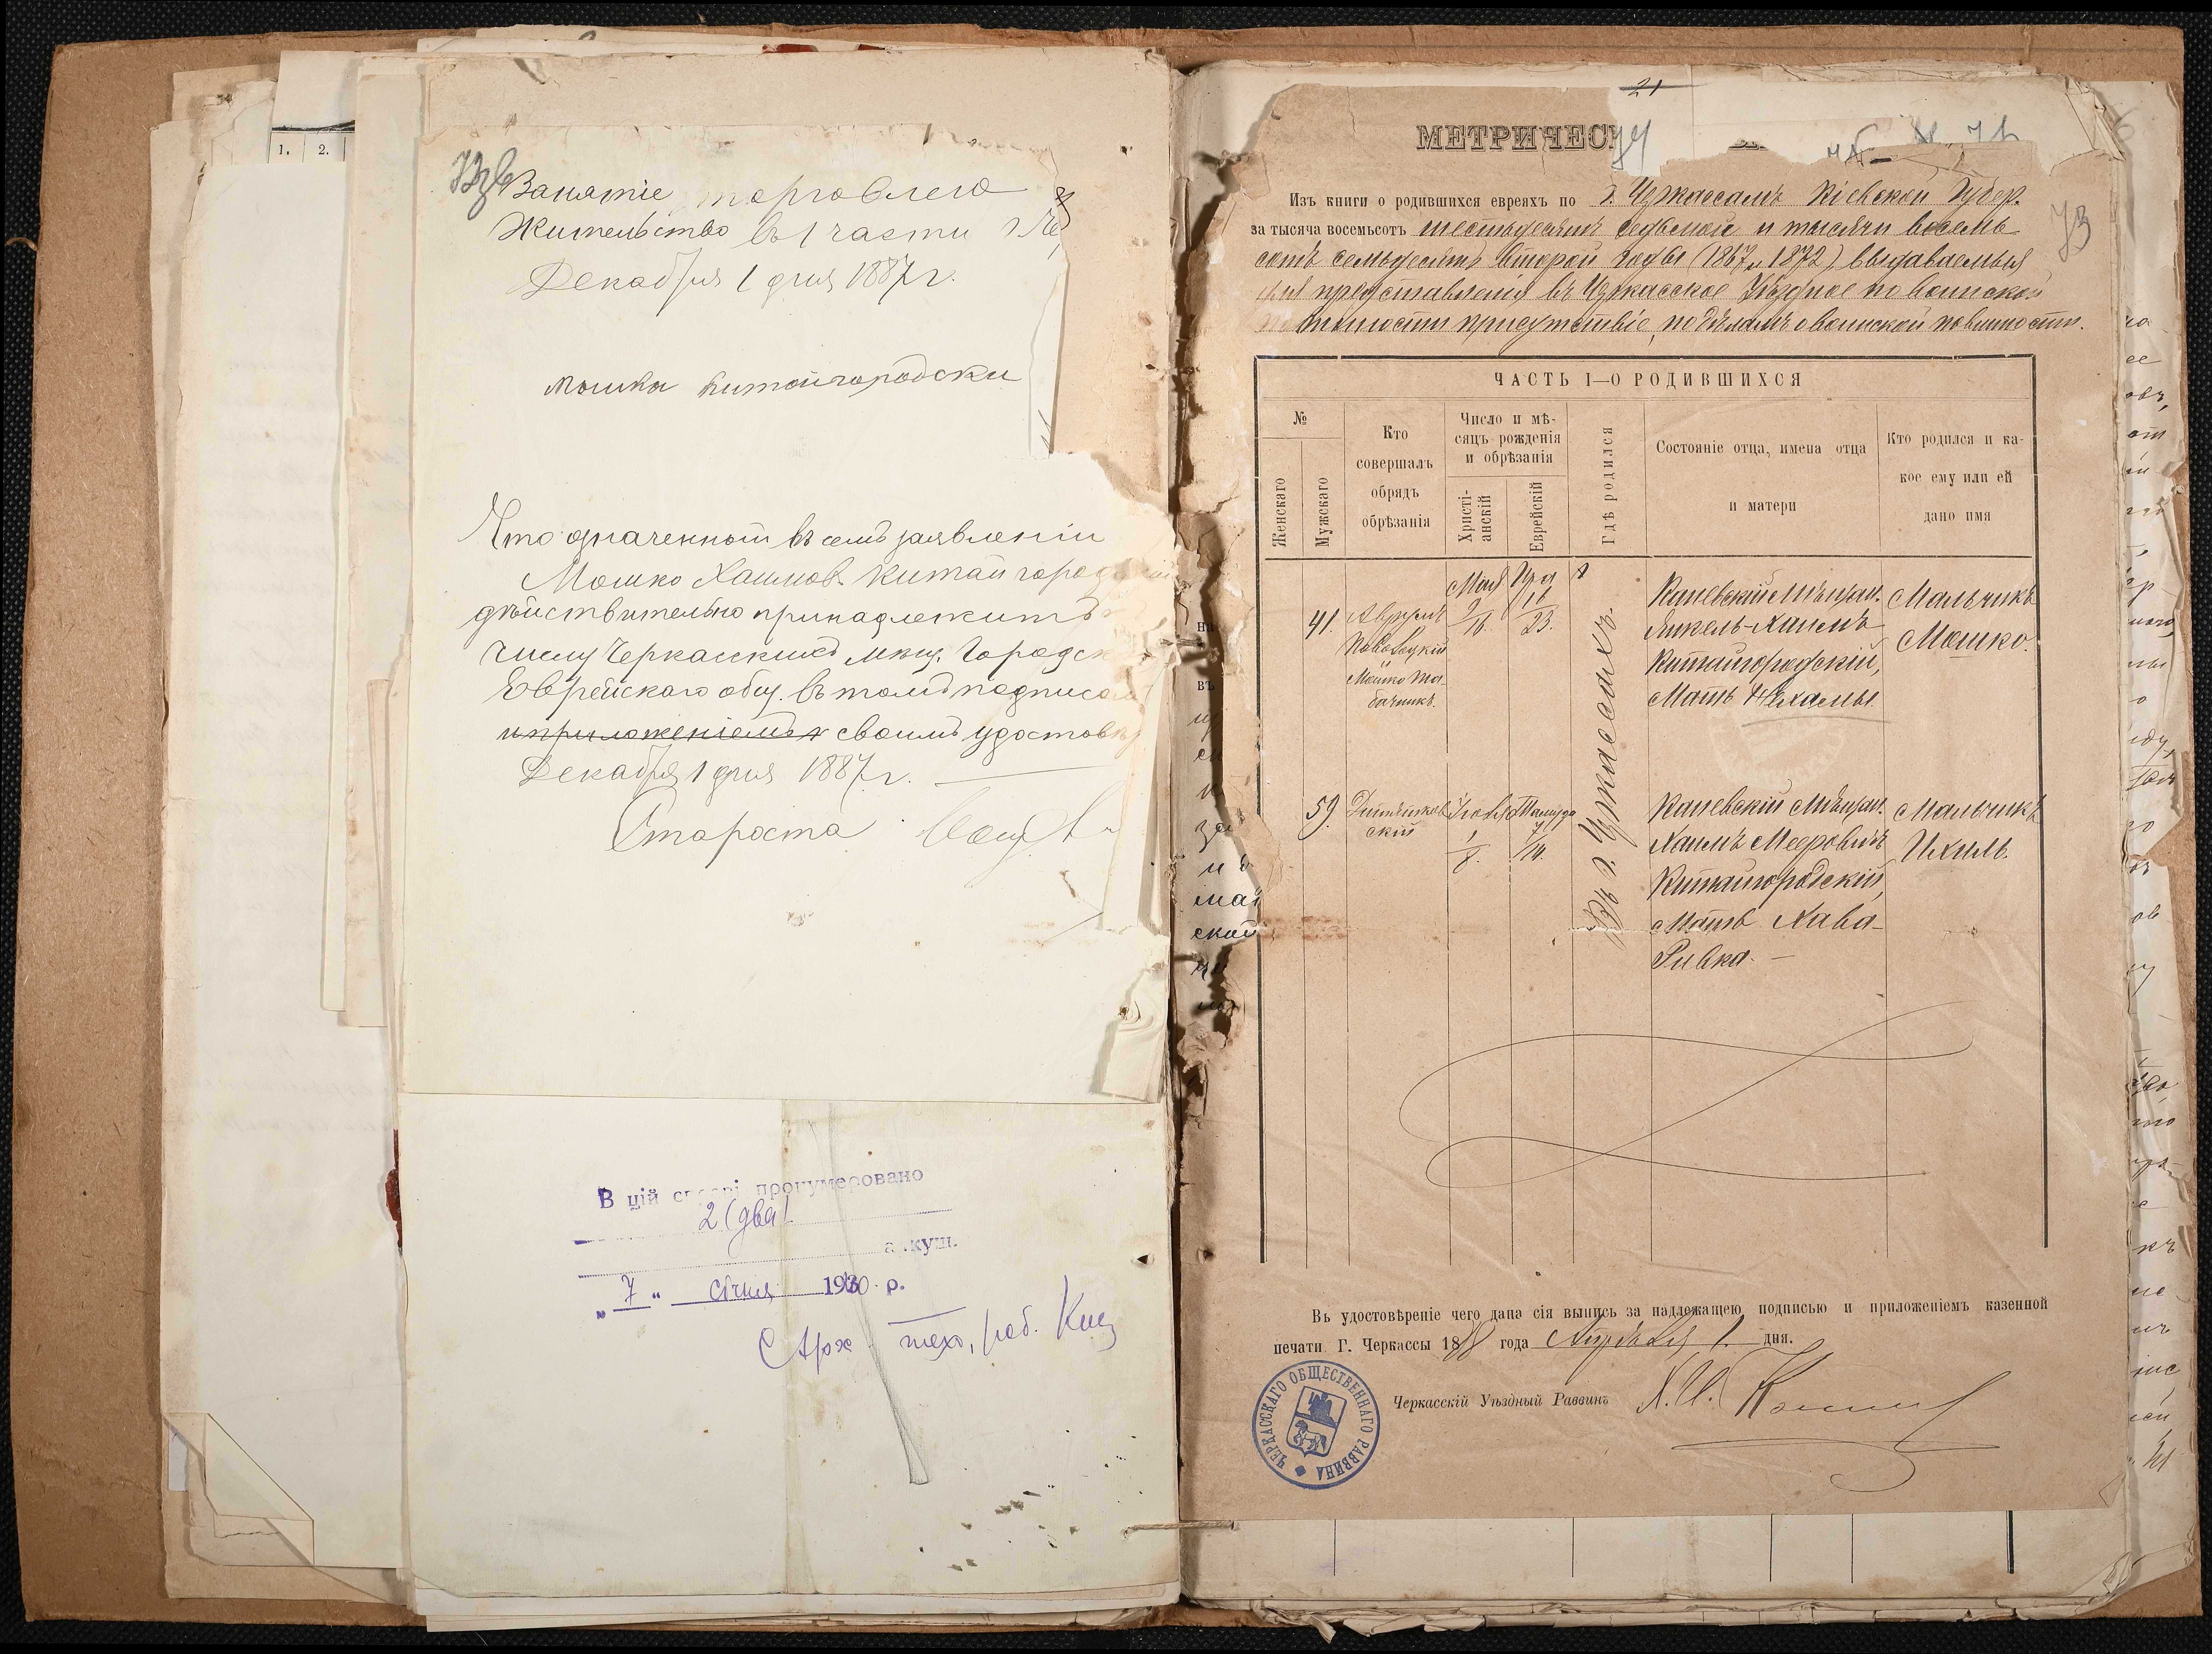 1. 2.
Занятіе торговлею
Жительство въ 1 части г. Че
Декабря 1 дня 1887 г.
мошка китайгородски
Что означенной въ семъ заявленіи
Мошко Хаимов. Китайгород
дѣйствительно принадлежитъ
числу Черкасскихъ мѣщ. Городск
Еврейскаго общ. въ томъ подписом
и приложеніемъ своимъ удостовѣ
Декабря 1 дня 1887 г.
Староста
В цій справі пронумеровано
2 (два)
аркуш.
„ 7 “ січня 1930 р.
Арх тех. роб.
21
МЕТРИЧЕС
74
73
Изъ книги о родившихся евреяхъ по г. Черкассамъ Кіевской Губер.
за тысяча восемьсотъ шестьдесятъ седьмой и тысяча восемь
сотъ семьдесятъ второй годы (1867 и 1872) выдаваемыя
для представленія въ Черкасское Уѣздное по воинской
повинности присутствіе, по дѣламъ о воинской повинности.
ЧАСТЬ I—О РОДИВШИХСЯ
№
Женскаго
Мужскаго
Кто совершалъ обрядъ обрѣзанія
Число и мѣсяцъ рожденія и обрѣзанія
Христіанскій
Еврейскій
Гдѣ родился
Состояніе отца, имена отца и матери
Кто родился и какое ему или ей дано имя
Въ г. Черкассахъ
41.
Новосоцкій
Мошко Табачникъ.
Мая
9/16.
16/23.
Каневскій Мѣщан.
Янкель-Хаимъ
Китайгородскій,
Мать Нехамы
Мальчикъ
Мошко.
59.
Іюня
1/8.
Тамуза
7/14.
Каневскій Мѣщан.
Хаимъ Мееровичъ
Китайгородскій,
Мать Хава-
Ривка. —
Мальчикъ
Ихиль.
Въ удостовѣреніе чего дана сія выпись за надлежащею подписью и приложеніемъ казенной
печати Г. Черкассы 1888 года Апрѣля 1. дня.
Черкасскій Уѣздный Раввинъ
ЧЕРКАССКАГО ОБЩЕСТВЕННАГО РАВВИНА